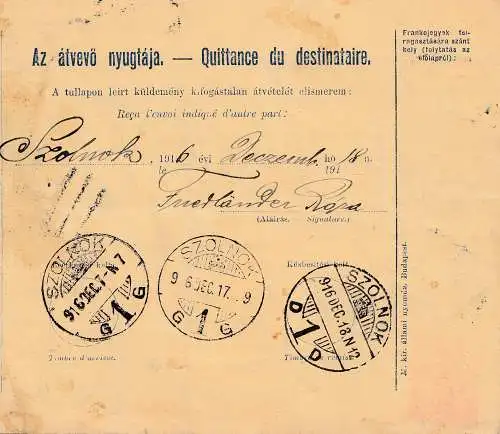 Frankojegyek fel-
ragasztására szánt
hely (folytatás az
előlapról):
Az átvevő nyugtája. — Quittance du destinataire.
A tullapon leirt küldemény kifogástalan átvételét elismerem:
Reçu l'envoi indiqué d'autre part:
Szolnok, 1916 évi Deczemb hó 18 n.
le 191
Friedländer Róza
(Aláirás. Signature.)
Kézbesitési kelt
SZOLNOK
916 DEC. 7. N 7
G 1 G
SZOLNOK
9 6 DEC. 17. 9
G 1 G
SZOLNOK
916 DEC. 18. N 12
D 1 D
Timbre d'arrivée.
M. kir. állami nyomda. Budapest.